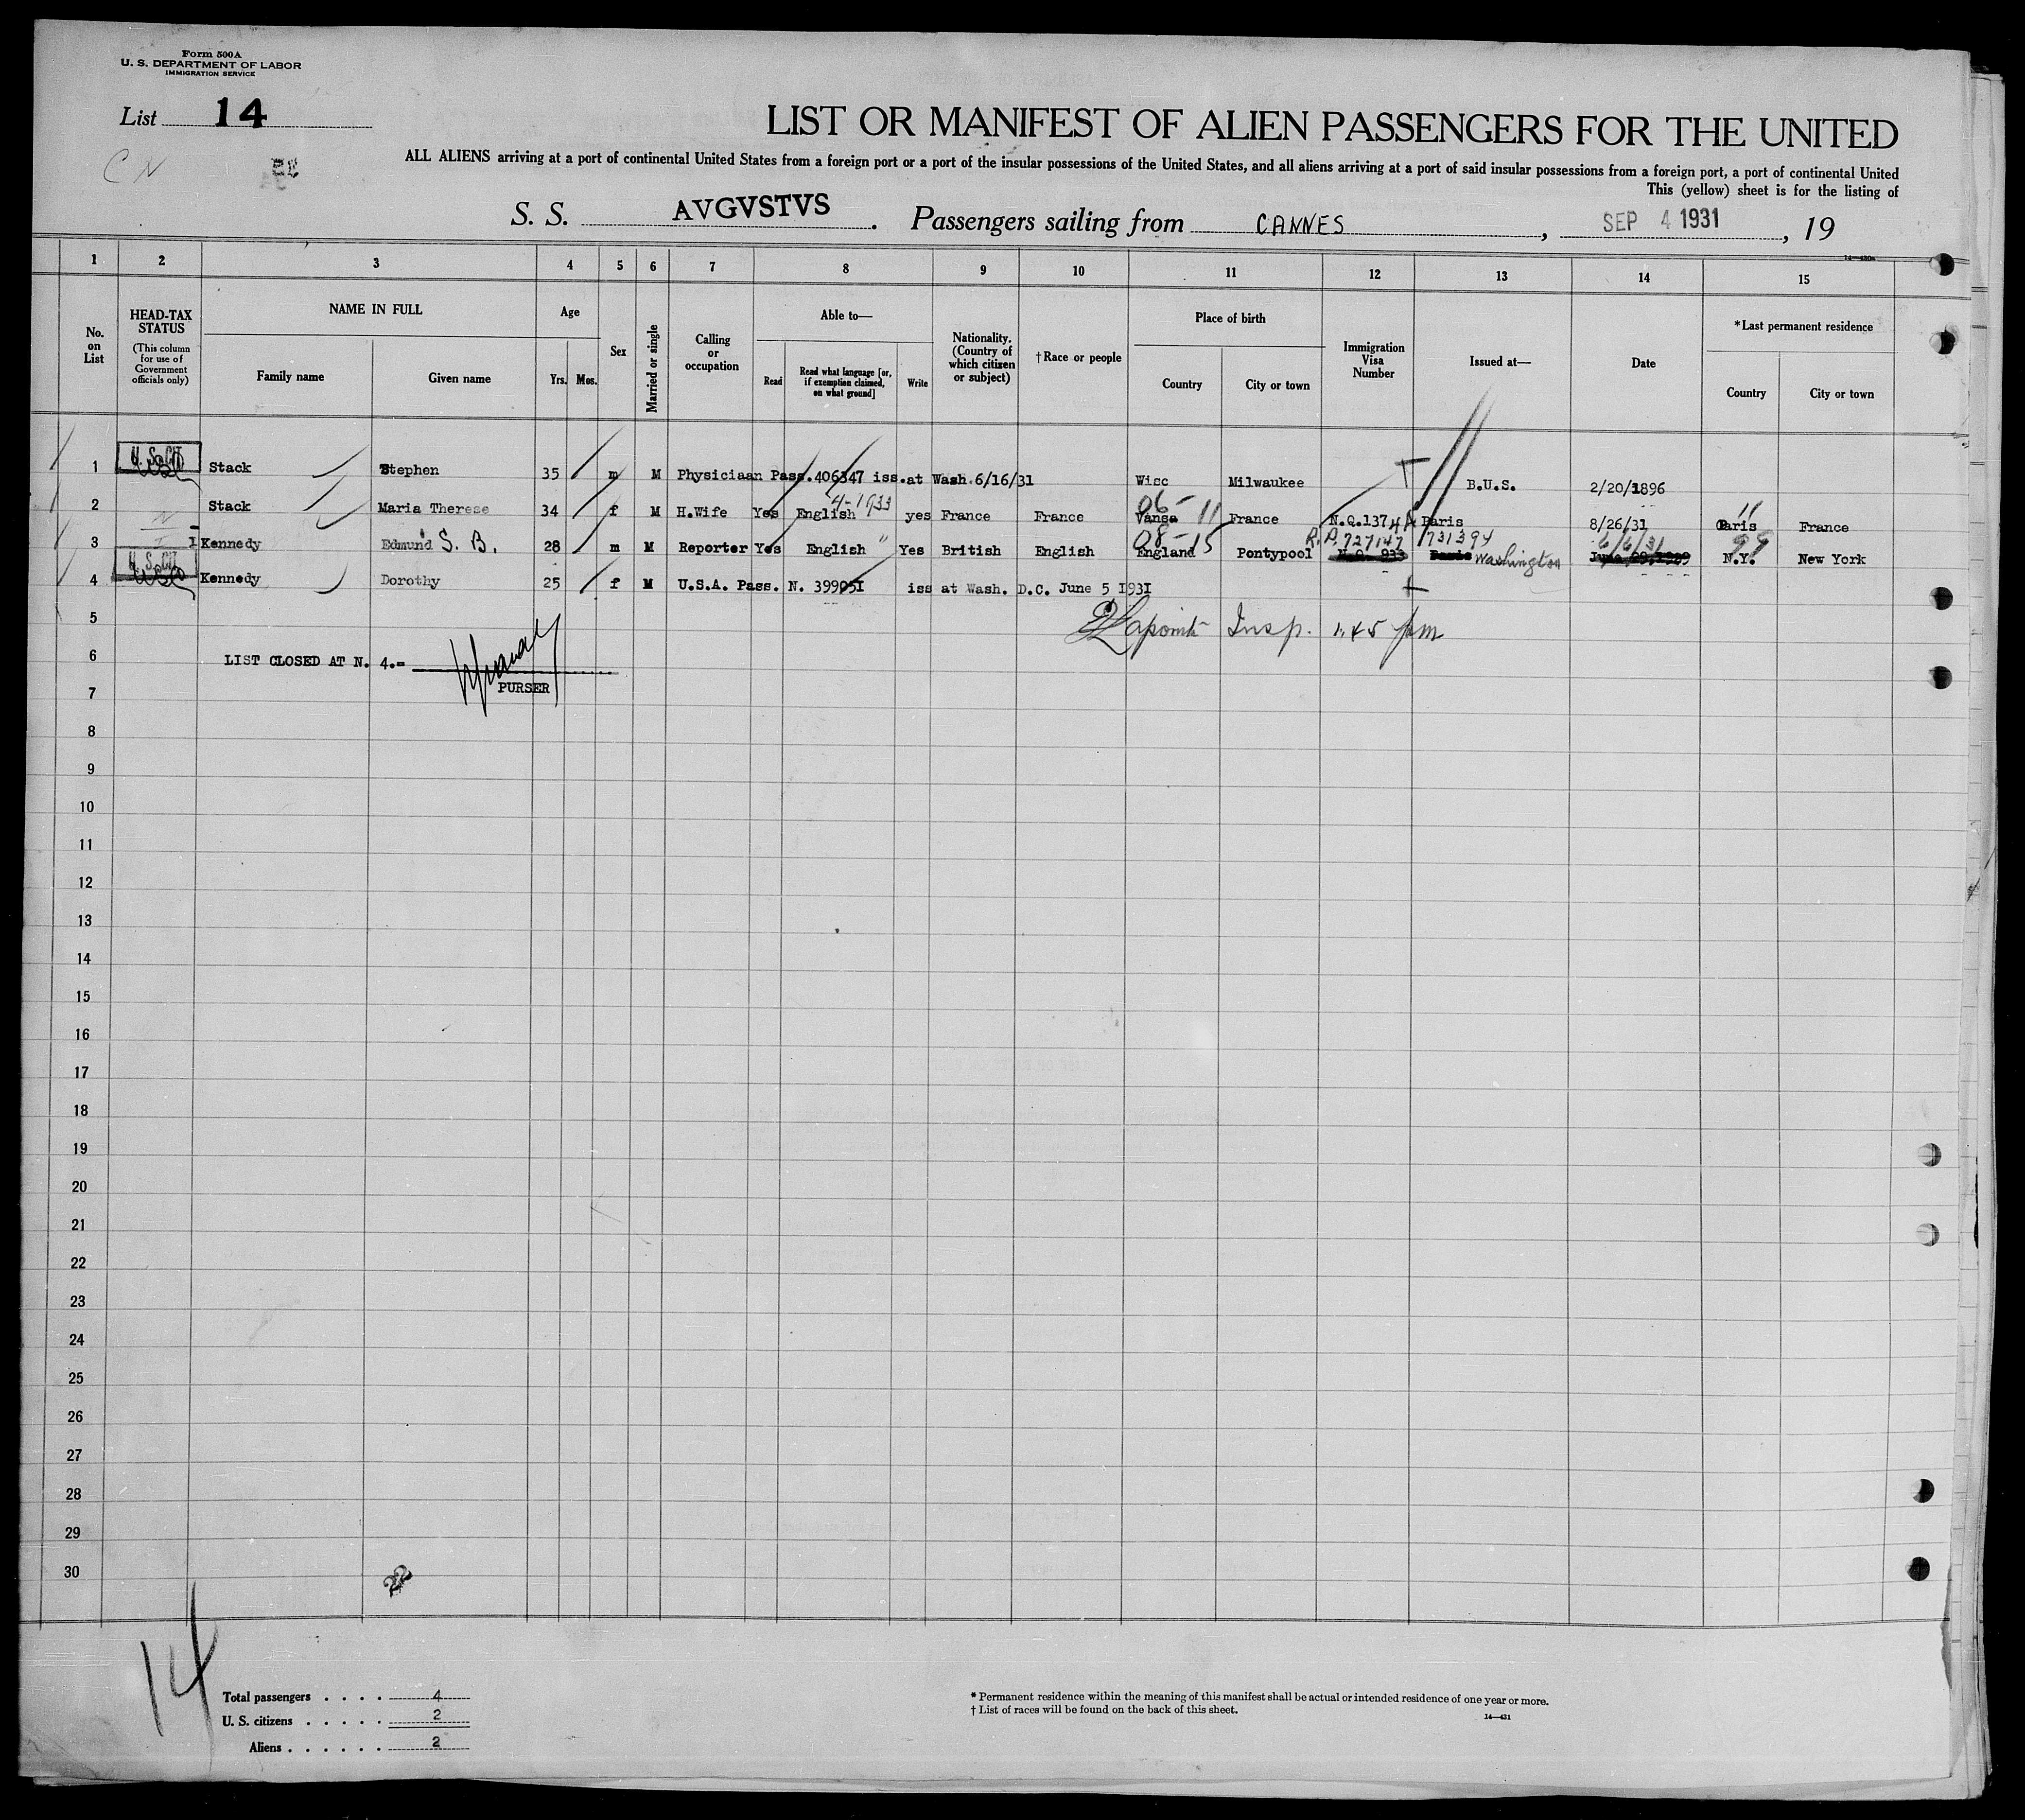 Form 500A
U. S. DEPARTMENT OF LABOR
IMMIGRATION SERVICE
List 14
LIST OR MANIFEST OF ALIEN PASSENGERS FOR THE UNITED
C N
ALL ALIENS arriving at a port of continental United States from a foreign port or a port of the insular possessions of the United States, and all aliens arriving at a port of said insular possessions from a foreign port, a port of continental United
This (yellow) sheet is for the listing of
S. S. AVGVSTVS . Passengers sailing from CANNES , SEP 4 1931 , 19
14—430a
1 2 3 4 5 6 7 8 9 10 11 12 13 14 15
No. on List
HEAD-TAX STATUS (This column for use of Government officials only)
NAME IN FULL
Family name Given name
Age
Yrs. Mos.
Sex
Married or single
Calling or occupation
Able to—
Read Read what language [or, if exemption claimed, on what ground] Write
Nationality. (Country of which citizen or subject)
†Race or people
Place of birth
Country City or town
Immigration Visa Number
Issued at—
Date
*Last permanent residence
Country City or town
1 U. S. CIT Stack Stephen 35 m M Physiciaan Pass.406347 iss.at Wash.6/16/31 Wisc Milwaukee B.U.S. 2/20/1896
4-1933 06-11 11
2 Stack Maria Therese 34 f M H.Wife Yes English yes France France Vansa France N.Q.1374 Paris 8/26/31 Paris France
08-15 R.P. 727147 731394 6/6/31 99
3 Kennedy Edmund S. B. 28 m M Reporter Yes English " Yes British English England Pontypool N.Q. 933 Paris Washington N.Y. New York
4 U. S. CIT Kennedy Dorothy 25 f M U.S.A. Pass. N. 399051 iss at Wash. D.C. June 5 1931
5 Insp. 1.45 pm
6 LIST CLOSED AT N. 4.=
7 PURSER
8
9
10
11
12
13
14
15
16
17
18
19
20
21
22
23
24
25
26
27
28
29
30
22
14
Total passengers . . . . 4
U. S. citizens . . . . . 2
Aliens . . . . . . 2
* Permanent residence within the meaning of this manifest shall be actual or intended residence of one year or more.
† List of races will be found on the back of this sheet.
14—431